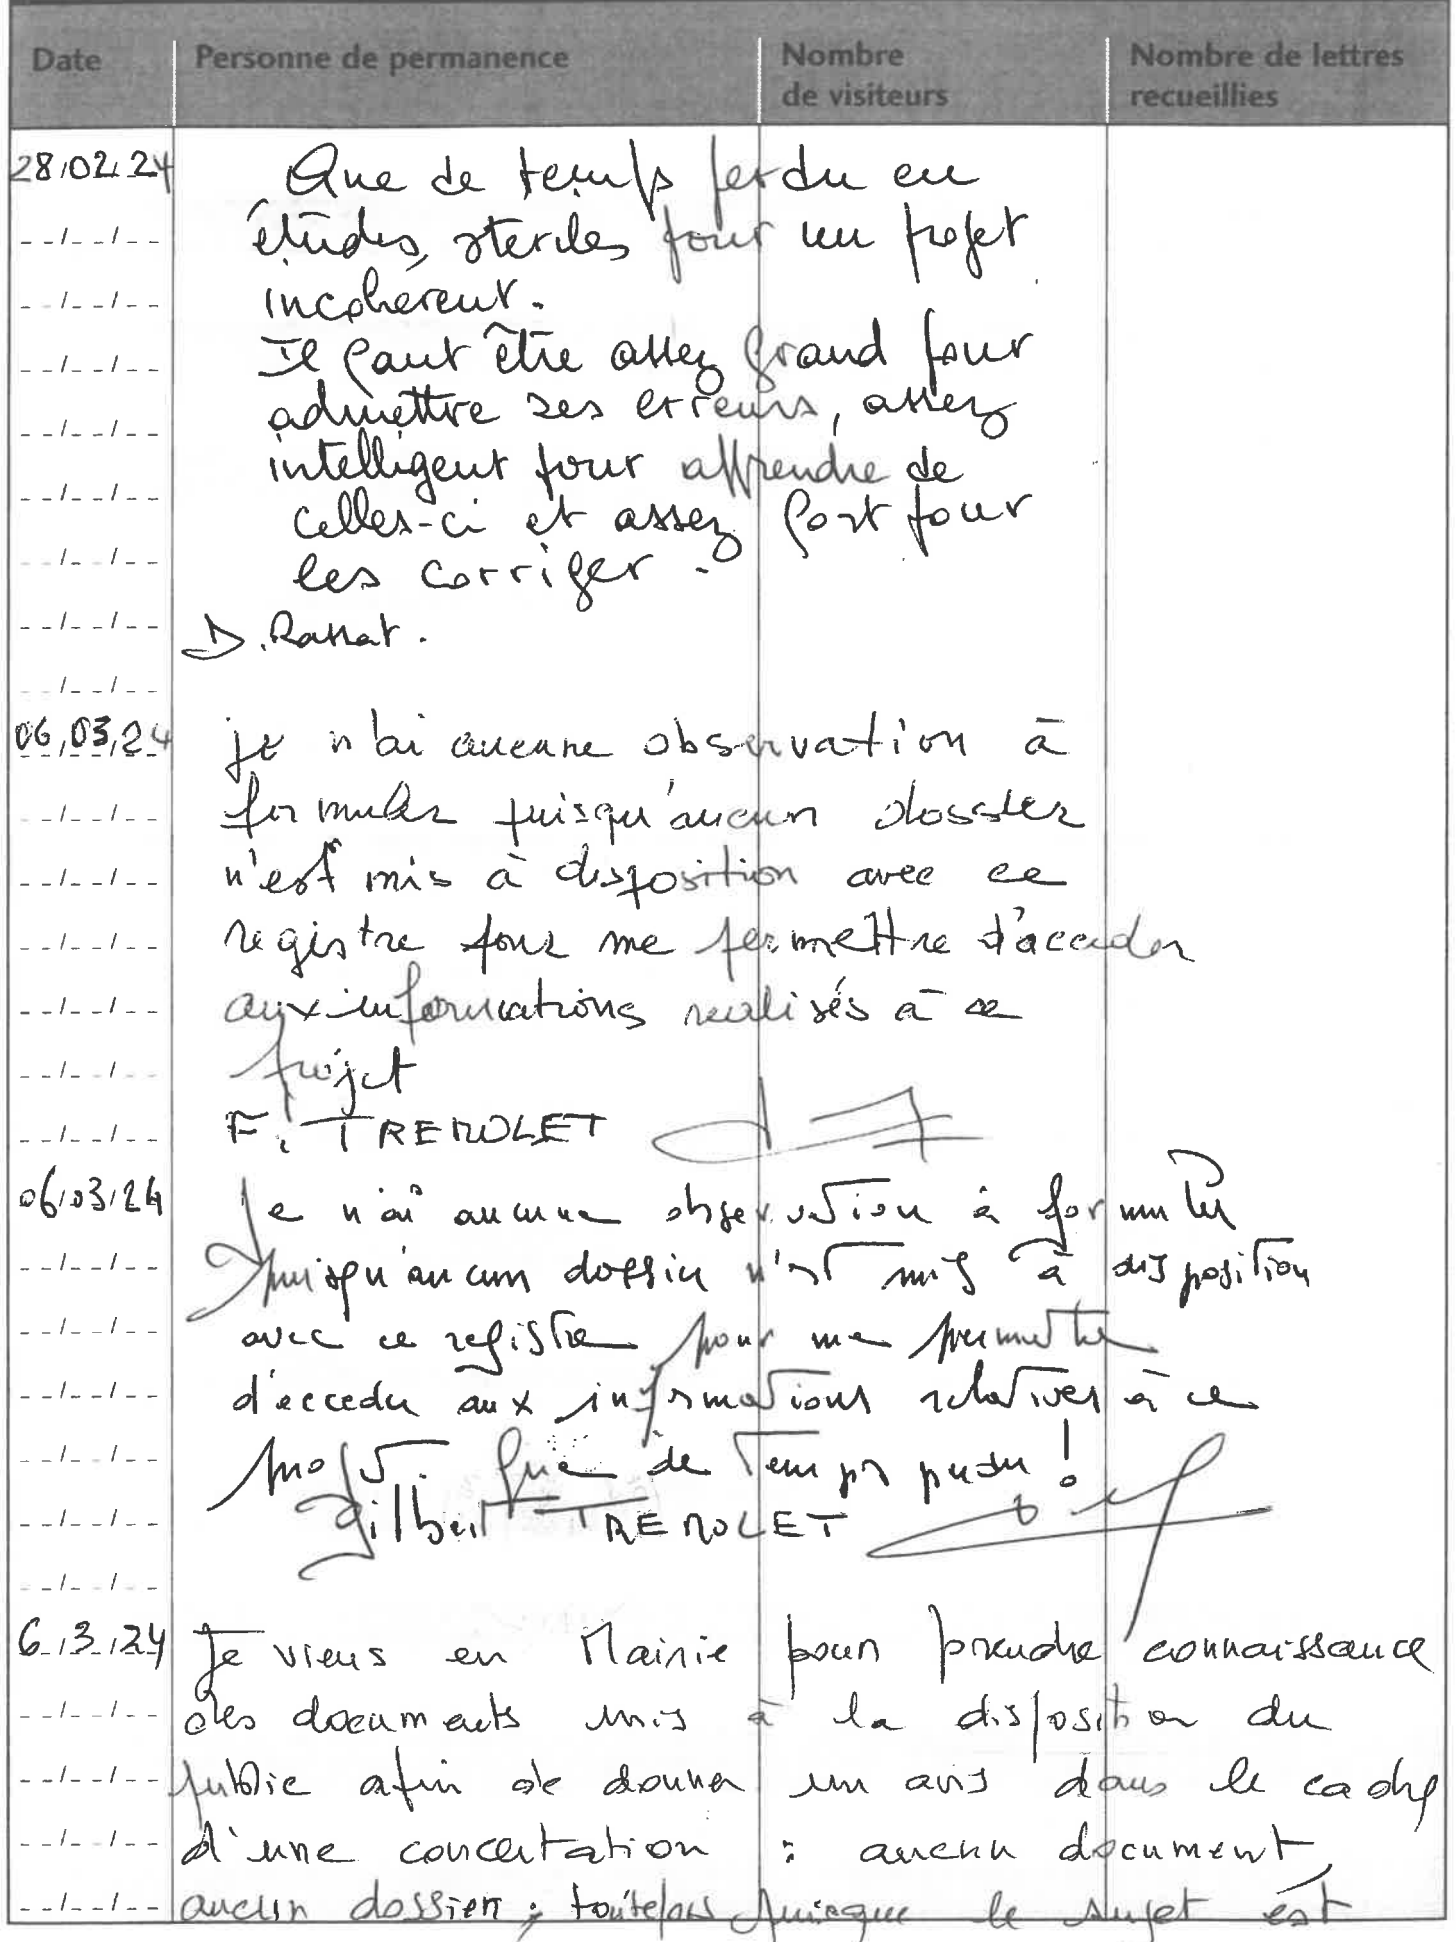 Date Personne de permanence Nombre de visiteurs Nombre de lettres recueillies
28/02/24 Que de temps perdu en
études, steriles pour un projet
incohérent.
Il faut être assez grand pour
admettre ses erreurs, assez
intelligent pour apprendre de
celles-ci et assez fort pour
les corriger.
D. Rassat.
06/03/24 je n'ai aucune observation à
formuler puisqu'aucun dossier
n'est mis à disposition avec ce
registre pour me permettre d'acceder
aux informations realisés à ce
projet
F. TREMOLET
06/03/24 Je n'ai aucune observation à formuler
puisqu'aucun dossier n'est mis à disposition
avec ce registre pour me permettre
d'acceder aux informations relatives à ce
projet. Que de temps perdu !
Gilbert TREMOLET
6/3/24 Je viens en Mairie pour prendre connaissance
des documents mis à la disposition du
public afin de donner un avis dans le cadre
d'une concertation : aucun document,
aucun dossier ; toutefois puisque le sujet est